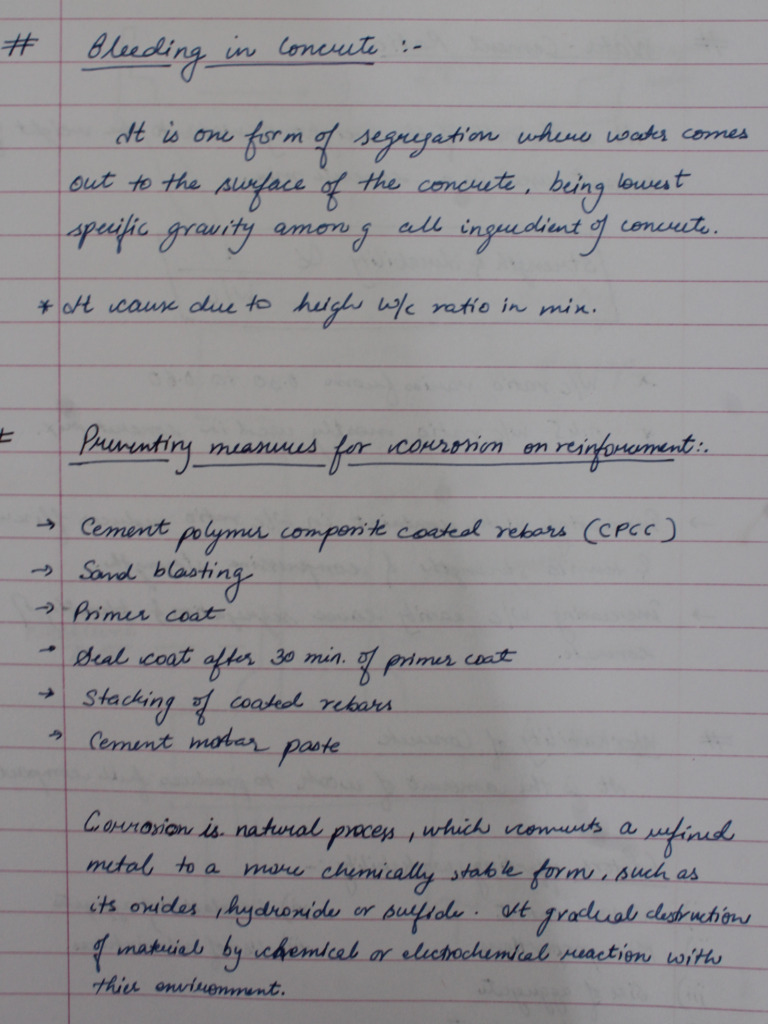 # Bleeding in Concrete :-
It is one form of segregation where water comes
out to the surface of the concrete, being lowest
specific gravity among all ingredient of concrete.
* It cause due to heigh w/c ratio in mix.
# Preventing measures for corrosion on reinforcement:.
→ Cement polymer composite coated rebars (CPCC)
→ Sand blasting
→ Primer coat
→ Seal coat after 30 min. of primer coat
→ Stacking of coated rebars
→ Cement motar paste
Corrosion is natural process, which converts a refined
metal to a more chemically stable form, such as
its oxides, hydroxide or sulfide. It gradual destruction
of material by chemical or electrochemical reaction with
thier environment.